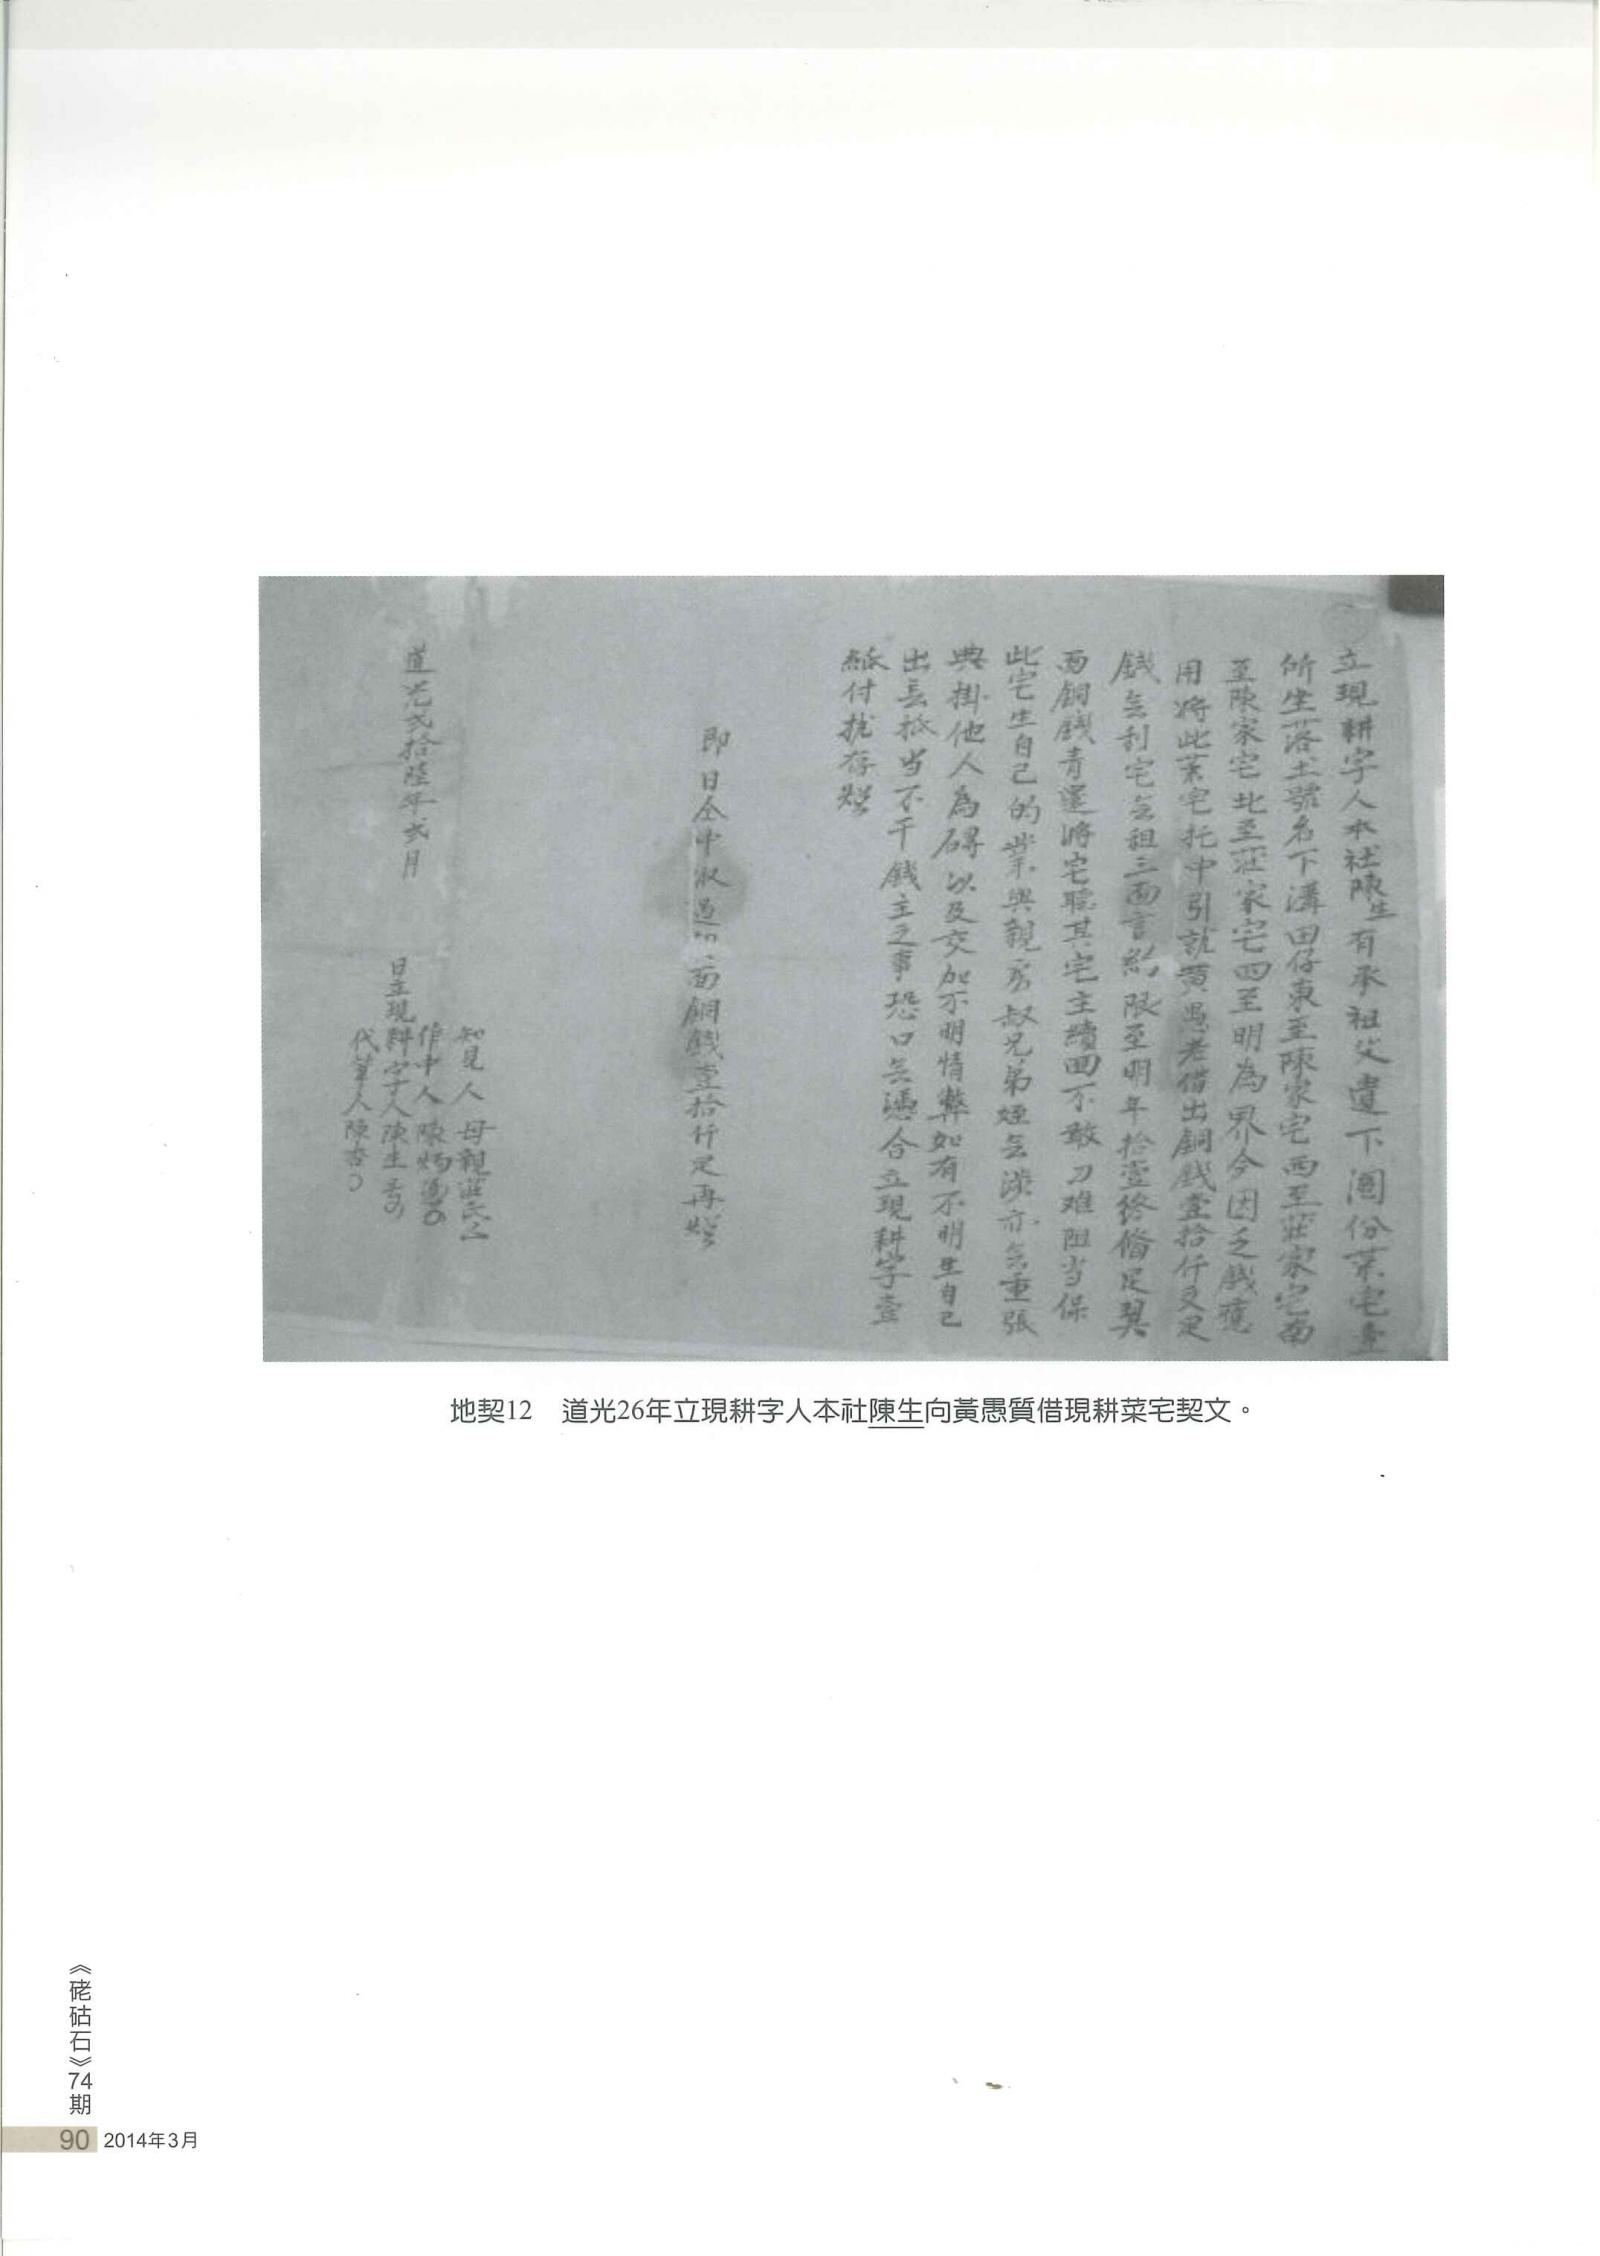 立現耕字人本社陳生有承祖父遺下鬮份菜宅壹
所坐落土號名下溝田仔東至陳家宅西至莊家宅南
至陳家宅北至莊家宅四至明為界今因乏錢應
用將此菜宅托中引就黃愚老借出銅錢壹拾仟文足
錢無利宅無租三面言約限至明年拾壹終備足契
面銅錢青還將宅聽其宅主續回不敢刁难阻当保
此宅生自己的業與親房叔兄弟姪無涉亦無重張
典掛他人為碍以及交加不明情弊如有不明生自己
出長抵当不干錢主之事恐口無憑合立現耕字壹
紙付执存炤
即日仝中收過面銅錢壹拾仟足再炤
知見人 母親莊氏
作中人 陳
道光弍拾陸年弍月 日立現耕字人陳生
代筆人陳杏
地契12 道光26年立現耕字人本社陳生向黃愚質借現耕菜宅契文。
《硓𥑮石》74期
90 2014年3月